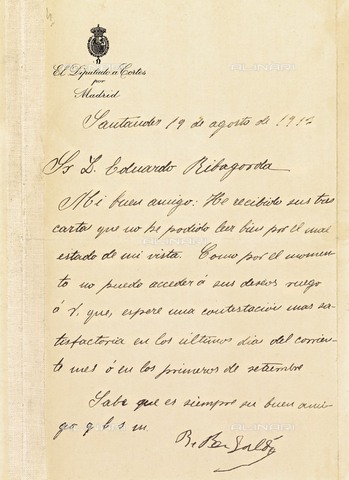 El Diputado a Cortes
por
Madrid
Santander 19 de agosto de 1912
Sr D. Eduardo Ribagorda
Mi buen amigo: He recibido sus tres
cartas que no he podido leer bien por el mal
estado de mi vista. Como por el momen
to no puedo acceder á sus deseos ruego
á V. que, espere una contestacion mas sa-
tisfactoria en los últimos dias del corrien-
te mes ó en los primeros de setiembre
Sabe que es siempre su buen ami-
go q b s m.
B. Perez Galdós
ALINARI